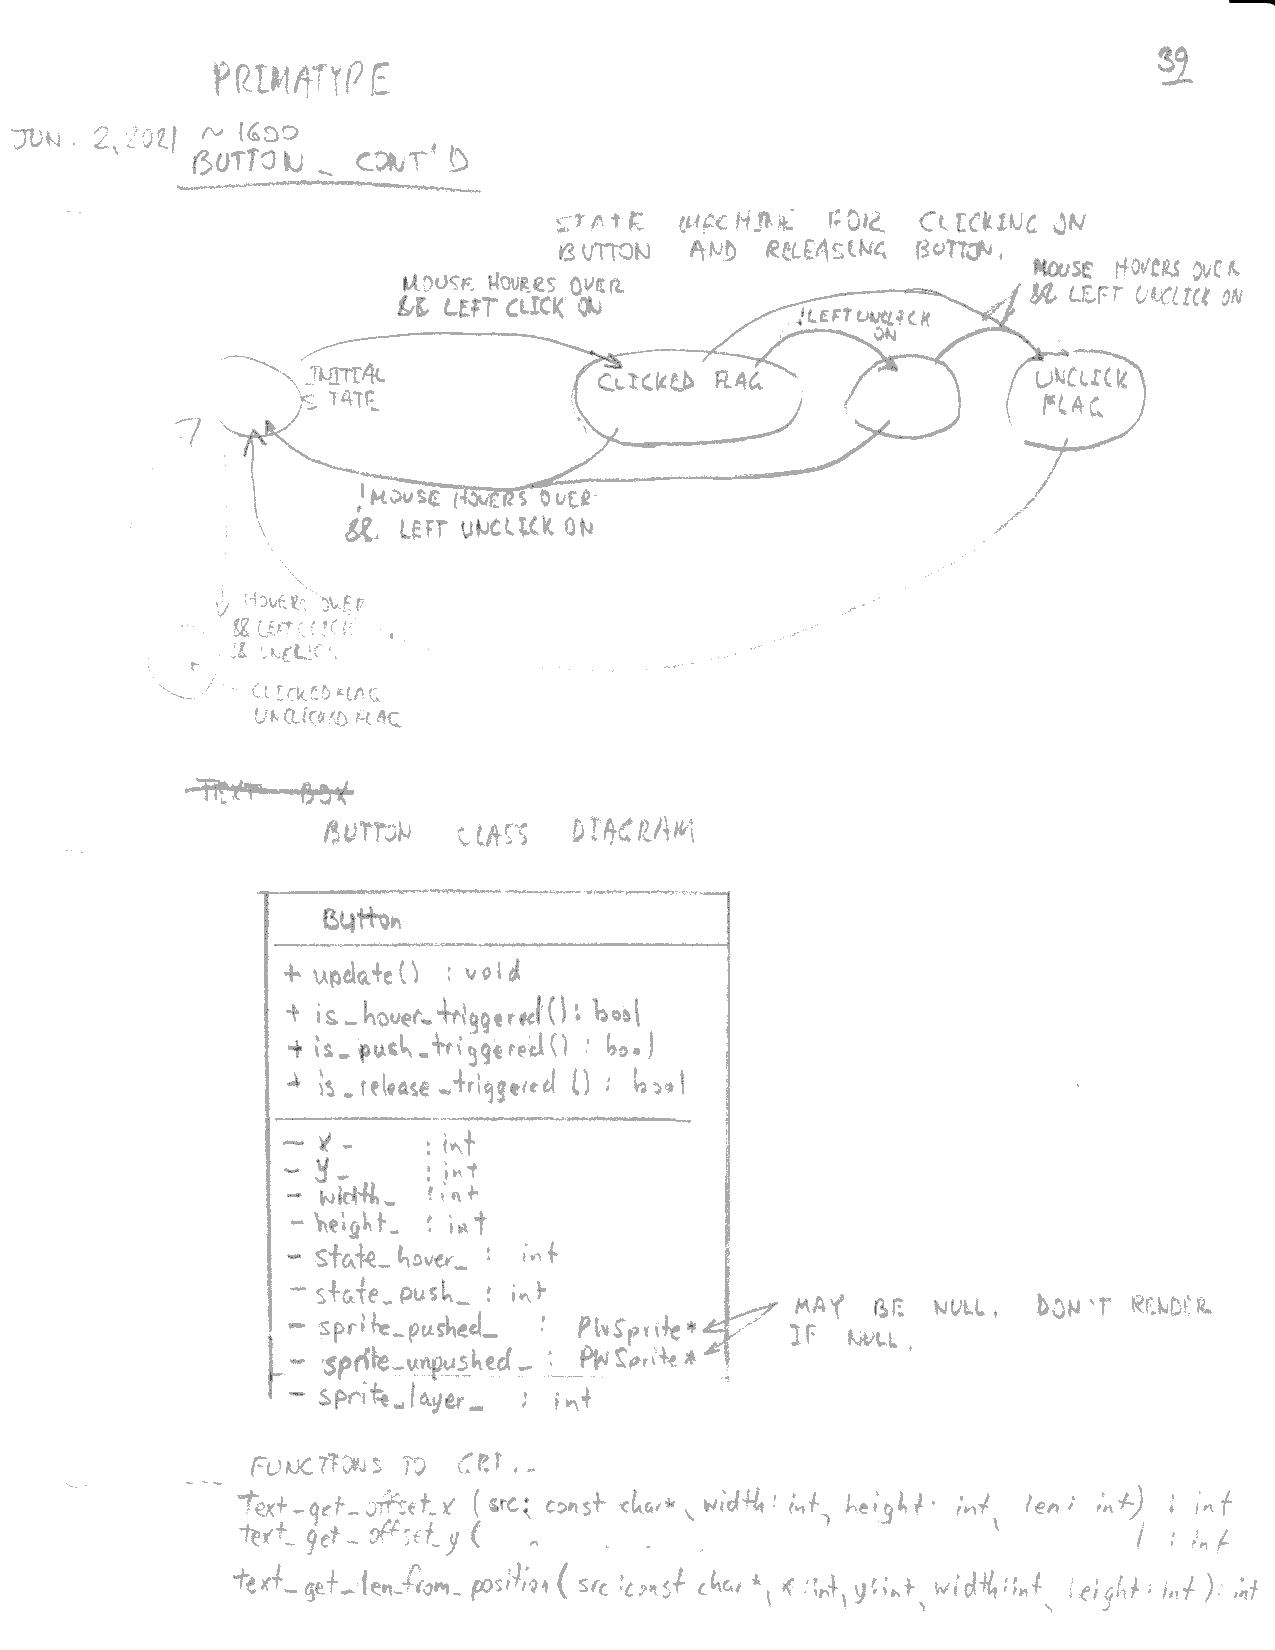 39
PRIMATYPE
JUN. 2, 2021 ~ 1600
BUTTON - CONT'D
STATE MACHINE FOR CLICKING ON
BUTTON AND RELEASING BUTTON.
MOUSE HOVERS OVER
&& LEFT CLICK ON
MOUSE HOVERS OVER
&& LEFT UNCLICK ON
!LEFT UNCLICK
ON
INITIAL
STATE
CLICKED FLAG
UNCLICK
FLAG
!MOUSE HOVERS OVER
&& LEFT UNCLICK ON
HOVERS OVER
&& LEFT CLICK
&& UNCLICK
CLICKED FLAG
UNCLICKED FLAG
TEXT BOX
BUTTON CLASS DIAGRAM
Button
+ update() : void
+ is_hover_triggered() : bool
+ is_push_triggered() : bool
+ is_release_triggered() : bool
- x_ : int
- y_ : int
- width_ : int
- height_ : int
- state_hover_ : int
- state_push_ : int
- sprite_pushed_ : PWSprite*
- sprite_unpushed_ : PWSprite*
- sprite_layer_ : int
MAY BE NULL. DON'T RENDER
IF NULL.
FUNCTIONS TO
text_get_offset_x (src: const char*, width: int, height: int, len: int) : int
text_get_offset_y ( ) : int
text_get_len_from_position( src: const char*, x: int, y: int, width: int, height: int ): int